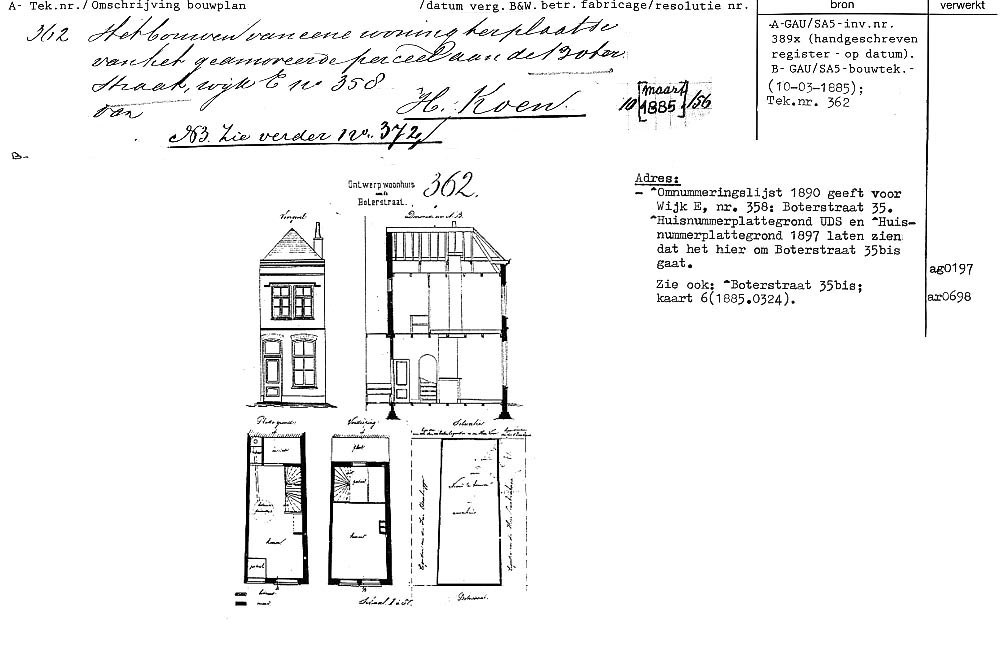 A- Tek.nr./Omschrijving bouwplan /datum verg. B&W. betr. fabricage/resolutie nr. bron verwerkt
362 Het bouwen van eene woning ter plaatse
van het geamoveerde perceel aan de Boter
straat, wijk E no 358
van H. Koen.
10 maart 1885 /56
NB. Zie verder no. 372
B-
A-GAU/SA5-inv.nr.
389x (handgeschreven
register - op datum).
B- GAU/SA5-bouwtek.-
(10-03-1885);
Tek.nr. 362
Adres:
- ^Omnummeringslijst 1890 geeft voor
Wijk E, nr. 358: Boterstraat 35.
^Huisnummerplattegrond UDS en ^Huis-
nummerplattegrond 1897 laten zien
dat het hier om Boterstraat 35bis
gaat.
Zie ook: ^Boterstraat 35bis;
kaart 6(1885.0324).
ag0197
ar0698
Ontwerp woonhuis
Boterstraat.
362.
Voorgevel
Doorsnede A.B.
Plattegrond
Verdieping
Situatie
plat
kamer
kamer
portaal
Boterstraat.